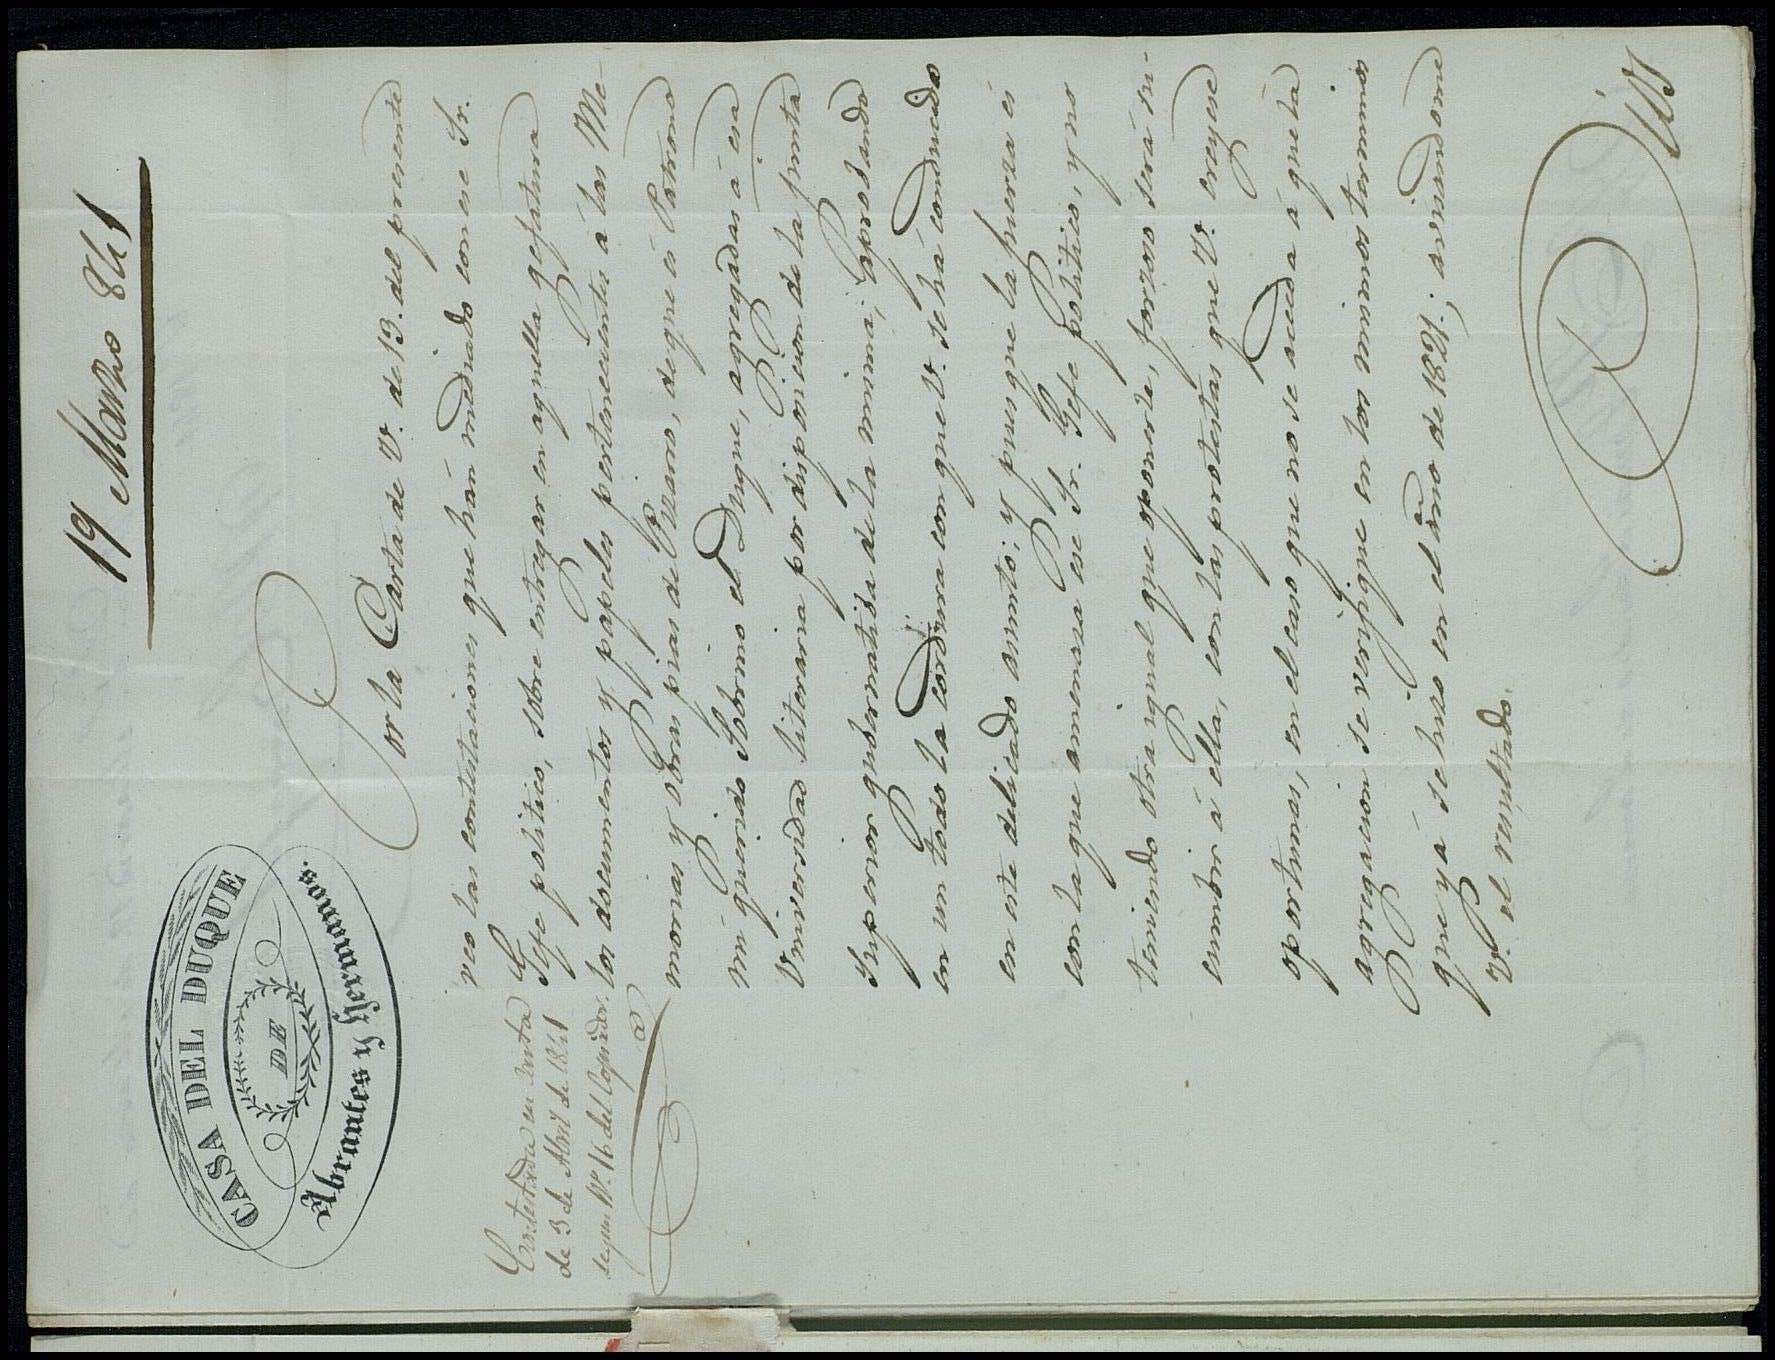 19 Marzo 841
CASA DEL DUQUE
DE
Abrantes y Hermanos.
Por la Carta de V. de 13. del presente
veo las contestaciones que hán mediado con ese Sr.
Gefe politico, sobre entregar en aquella gefatura
los documentos y papeles pertenecientes á las Me-
morias y obras pias de, de que es Patrono
mi querido Sobrino el Duque, agregadas á esa
Universidad literaria por disposicion de la junta
Superior gubernatiba de la misma; aprobando
en un todo la cordura con que V. se há conducido
en este delicado asunto; y pues que la fuerza és
con la que amenaza ese Sr. Gefe politico, y no
teniendo otra igual que oponerle, forzoso será su-
cumbir á élla, con las protestas que V. creyese
oportunas, en el caso que no se acceda á que la
agregacion se verifique en los mismos terminos
que yá se hizo en el año de 1821.; avisandome
V. el resultado.
Contestada en Carta
de 3 de Abril de 1841
segun Nº. 16 del Copiador.